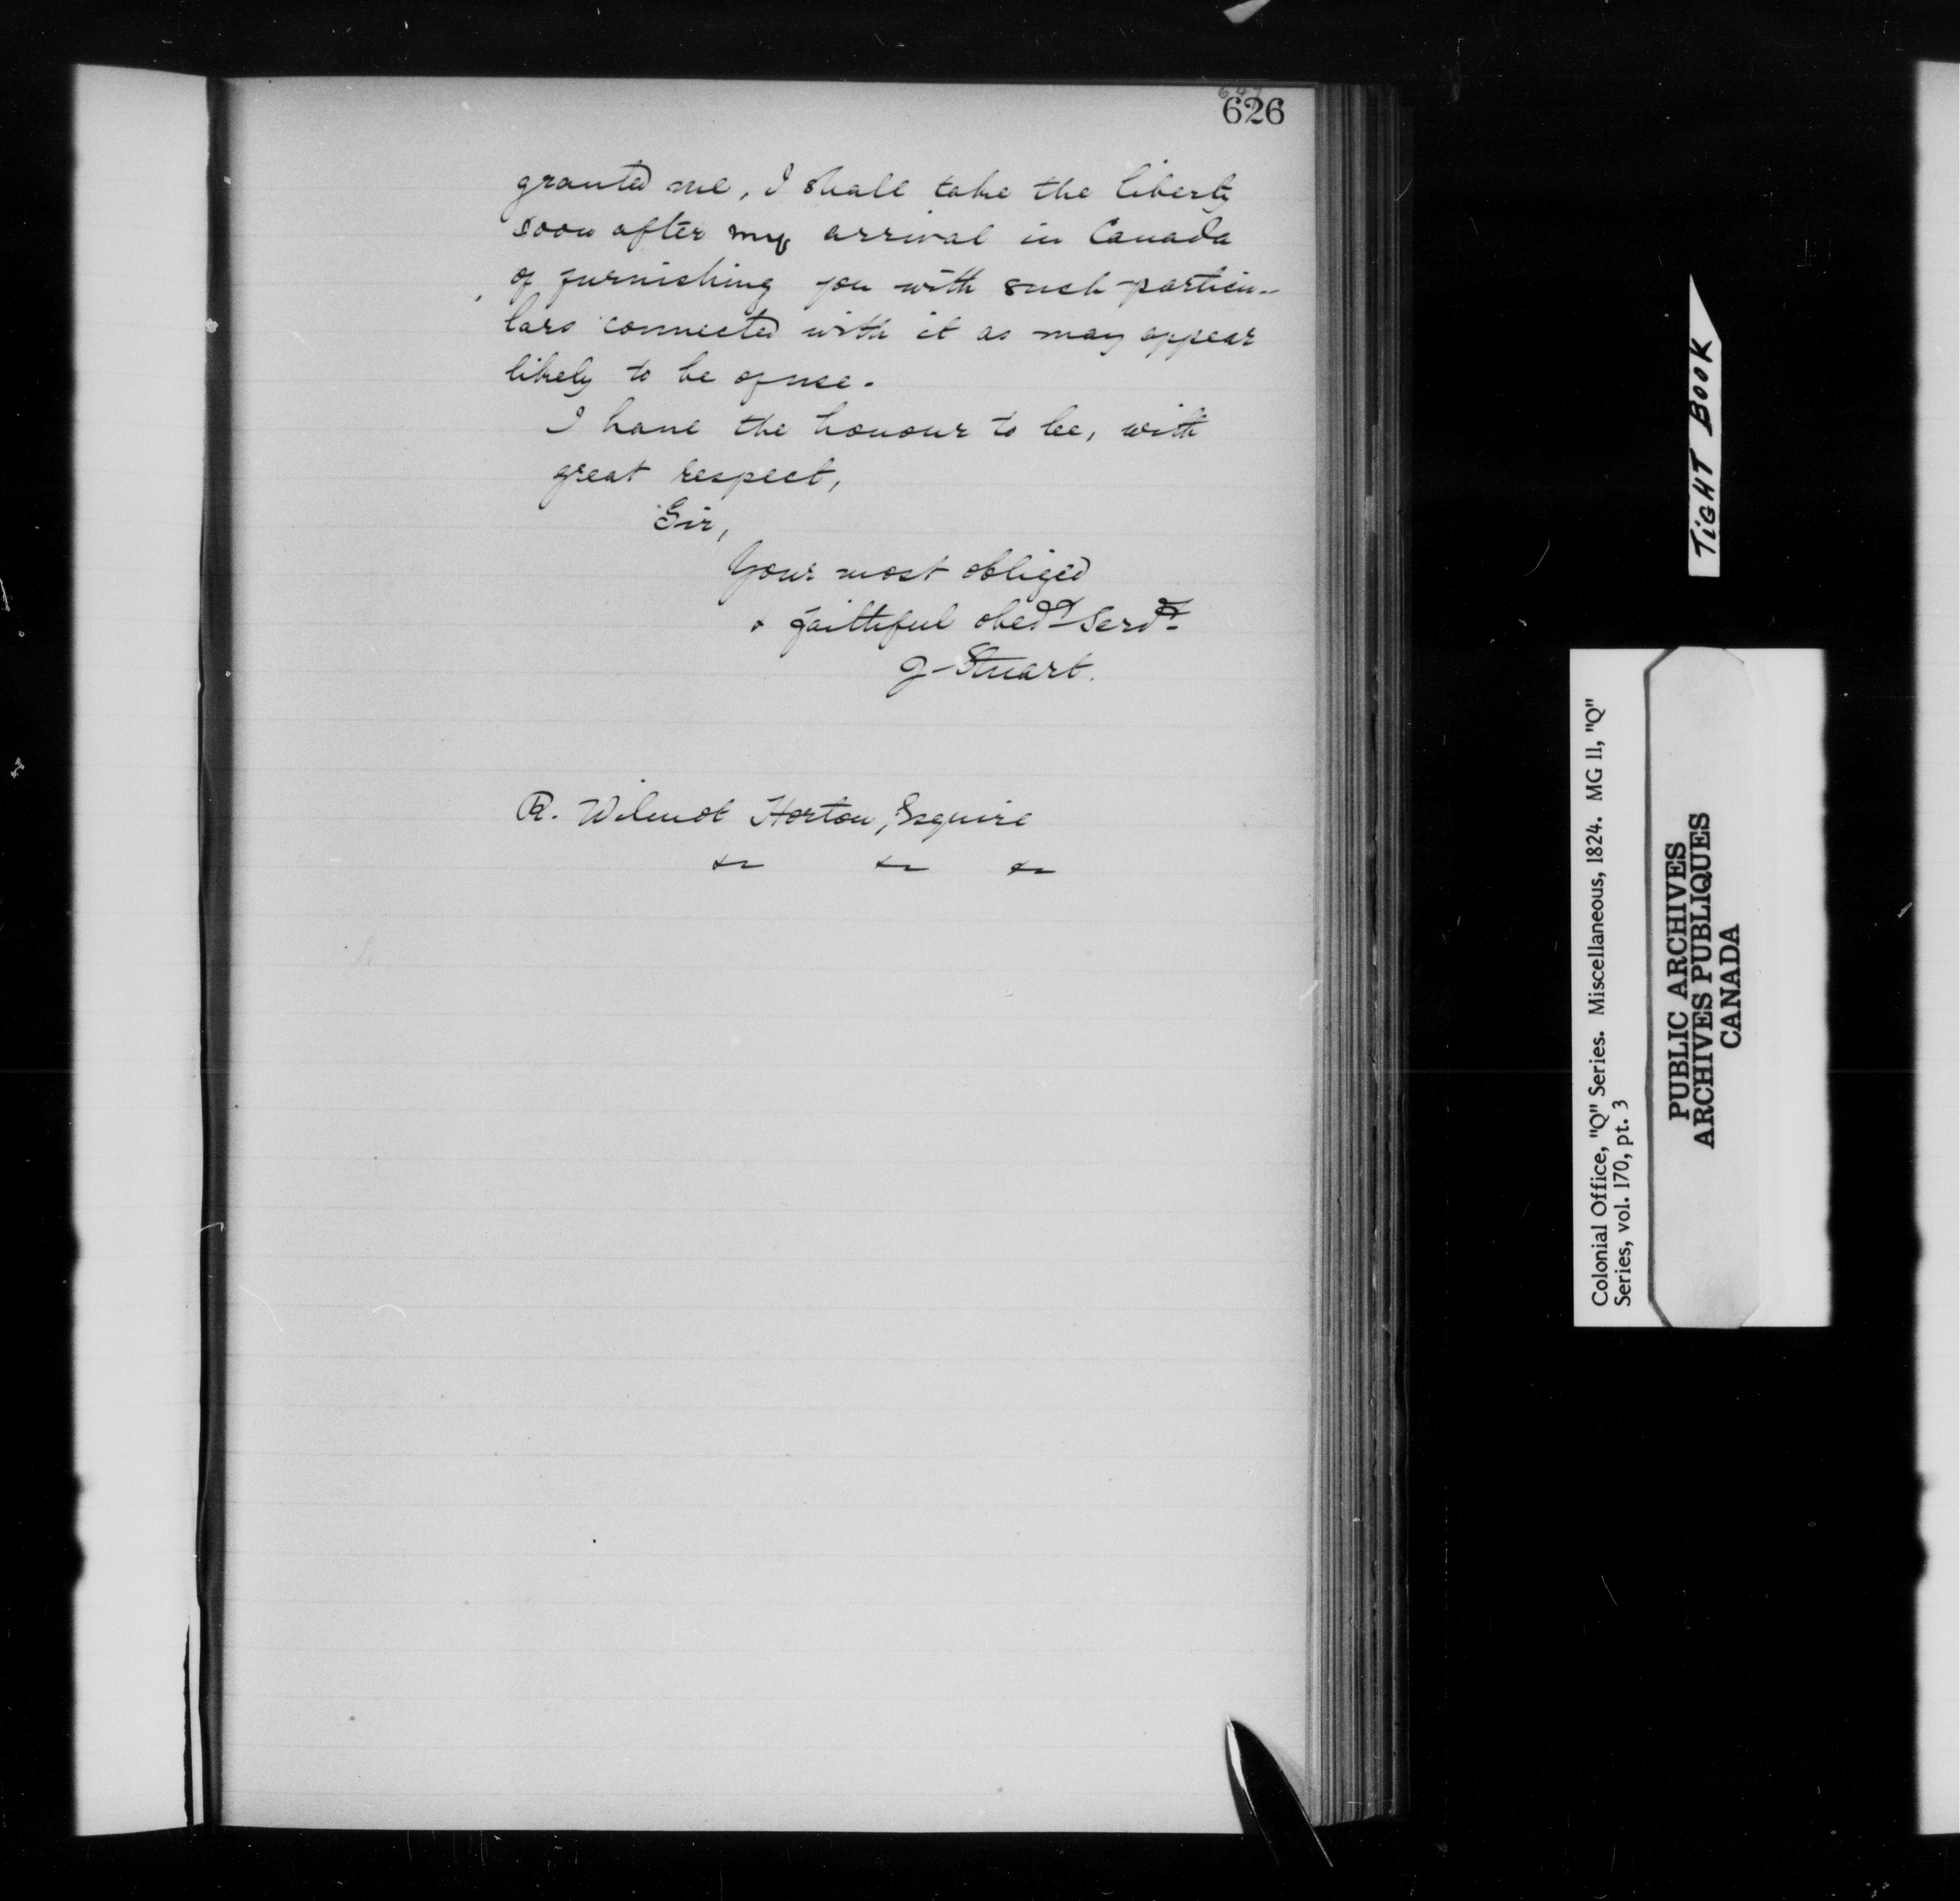 626
granted me, I shall take the liberty
soon after my arrival in Canada
of furnishing you with such particu-
lars connected with it as may appear
likely to be of use.
I have the honour to be, with
great respect,
Sir,
Your most obliged
& faithful obedt Servt
J Stuart.
R. Wilmot Horton, Esquire
&c &c &c
TIGHT BOOK
Colonial Office, "Q" Series. Miscellaneous, 1824. MG 11, "Q"
Series, vol. 170, pt. 3
PUBLIC ARCHIVES
ARCHIVES PUBLIQUES
CANADA